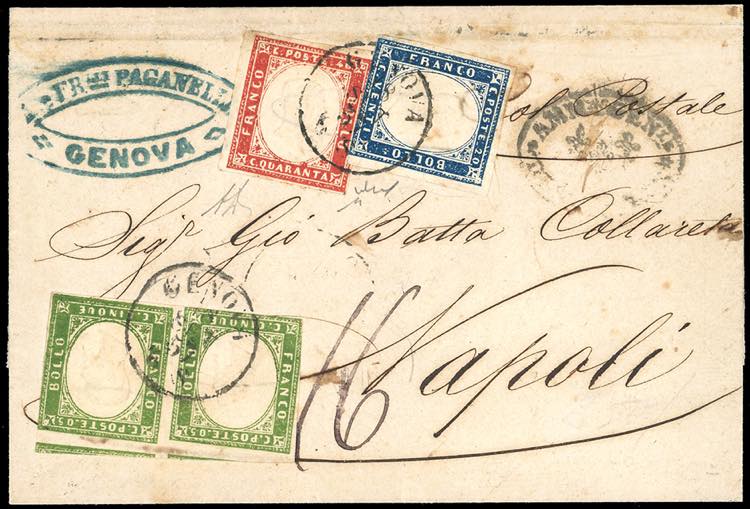 FRlli PAGANELLI
GENOVA
C. POSTE. 40
FRANCO
BOLLO
C. QUARANTA
GENOVA
FRANCO
C. POSTE. 20
C. VENTI
BOLLO
Col Postale
Sigr Gió Batta Collareta
Napoli
16
GENOVA
C. CINQUE
BOLLO
FRANCO
C. POSTE. 05
C. CINQUE
BOLLO
FRANCO
C. POSTE. 05